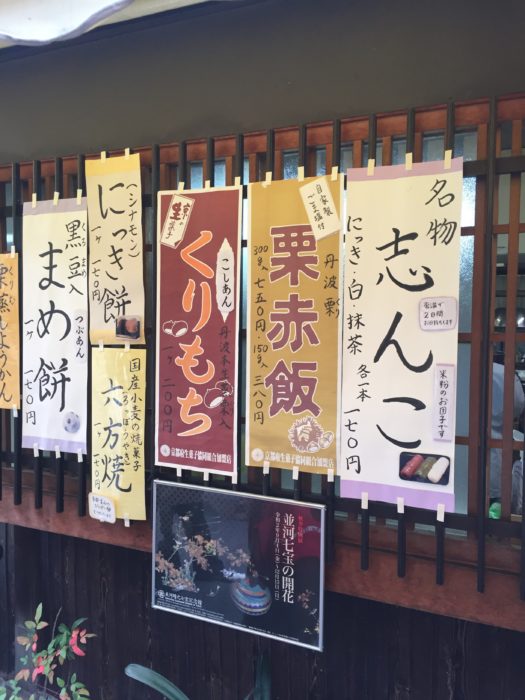 名物
志んこ
にっき・白・抹茶 各一本 一七〇円
常温で
2日間
お日持ちします
米粉のお団子です
自家製
ごま塩付
丹波 栗
栗赤飯
300g入 七五〇円・150g入 三八〇円
京都府生菓子協同組合加盟店
くりもち
こしあん
一ヶ 二〇〇円
京都府生菓子協同組合加盟店
(シナモン)
にっき餅
一ケ 一七〇円
国産小麦の焼菓子
六方焼
一ケ 一七〇円
黒豆入
まめ餅
つぶあん
一ケ 一七〇円
栗蒸しようかん
並河七宝の開花